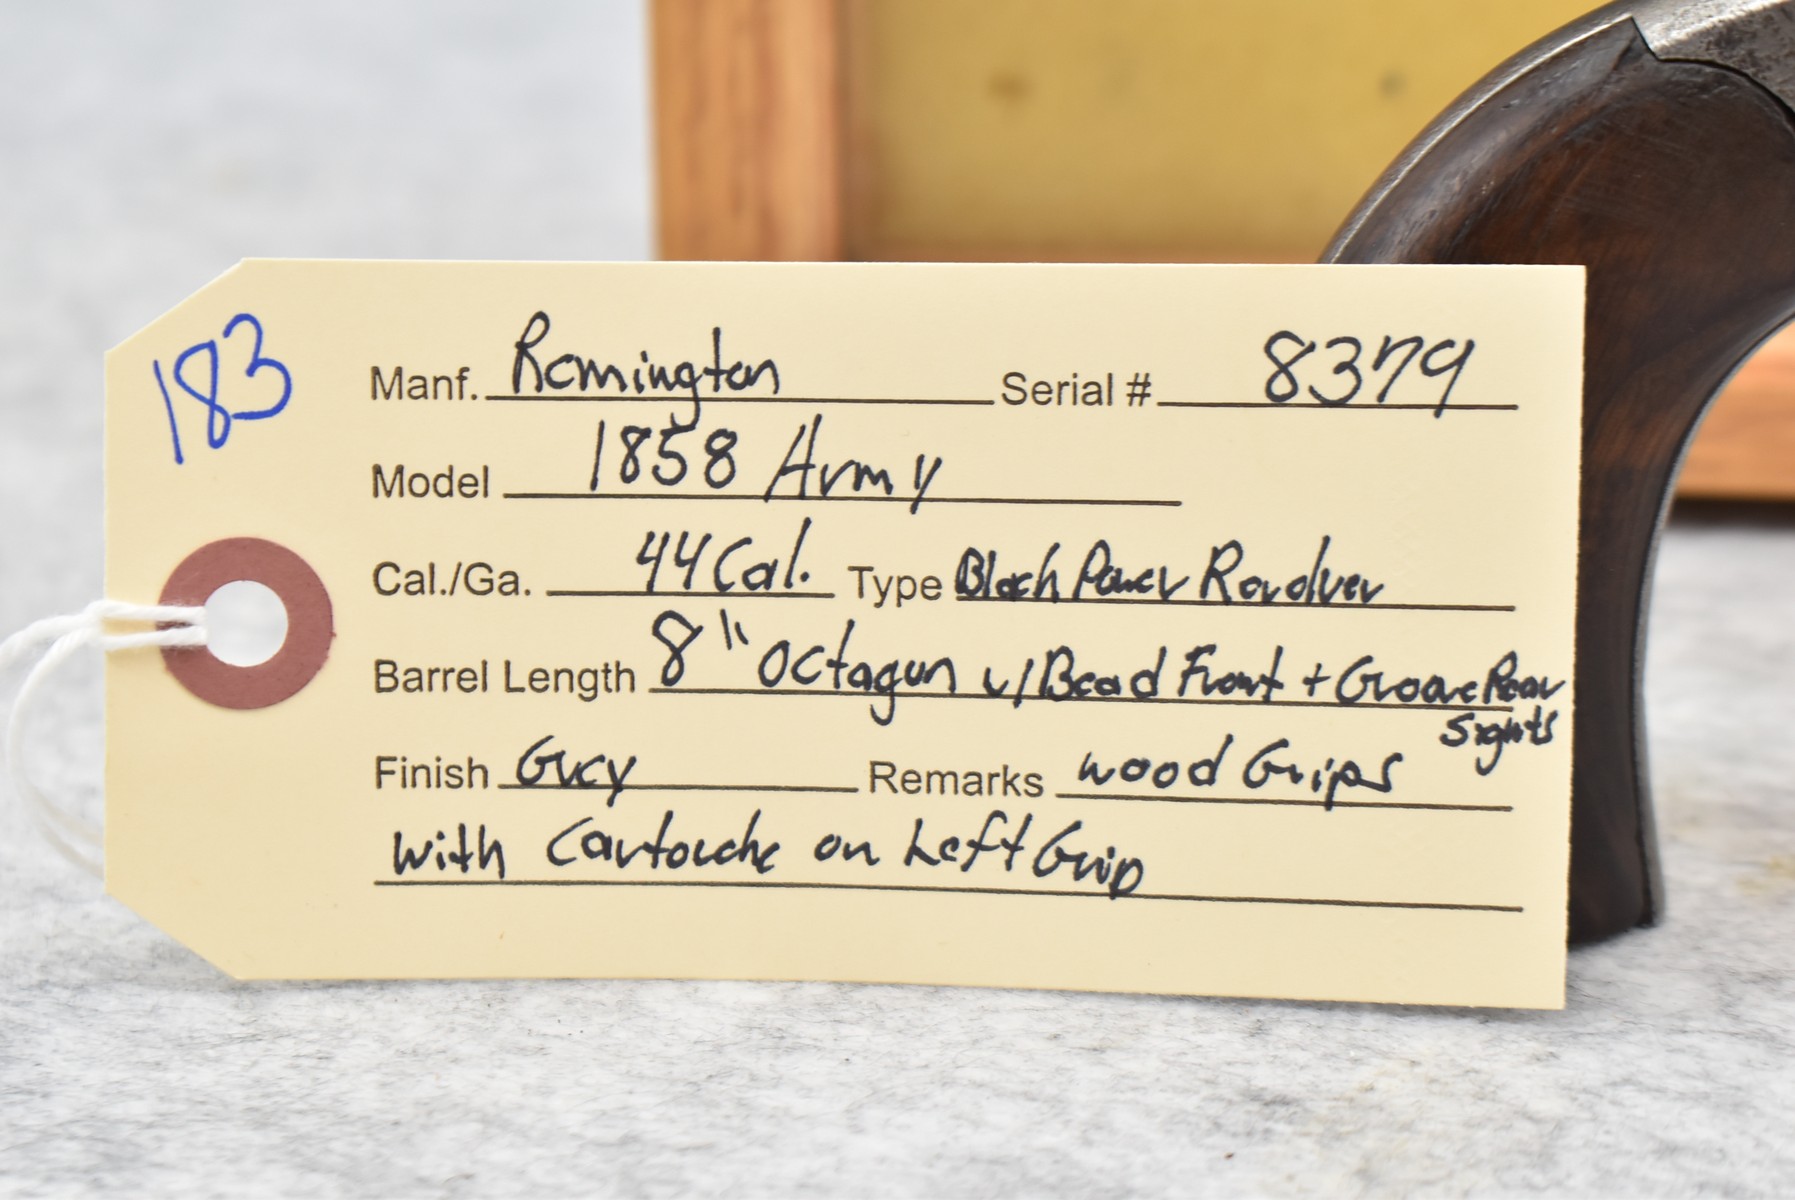 183
Manf. Remington Serial # 8379
Model 1858 Army
Cal./Ga. 44 Cal. Type Black Power Revolver
Barrel Length 8" Octagon w/ Bead Front + Groove Rear
Sights
Finish Grey Remarks Wood Grips
With Cartouche on Left Grip